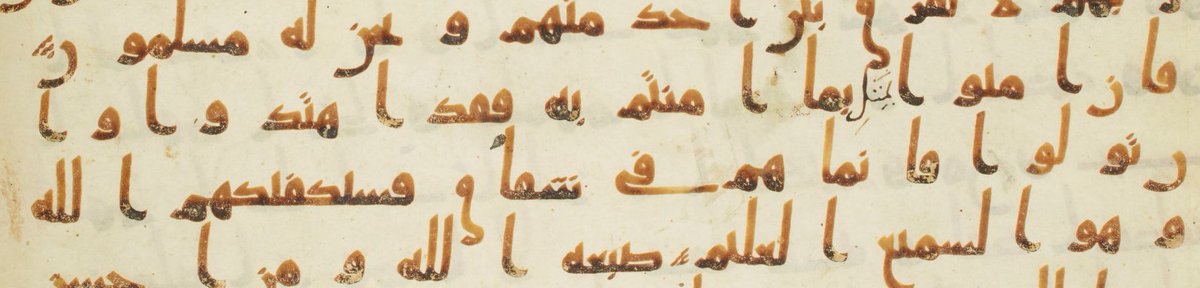 ربهم لا نفرق بين احد منهم و نحن له مسلمون
فان امنوا بمثل بما امنتم به فقد اهتدوا وا
ن تولوا فانما هم في شقاق فسيكفيكهم الله
و هو السميع العليم صبغه الله و من احسن